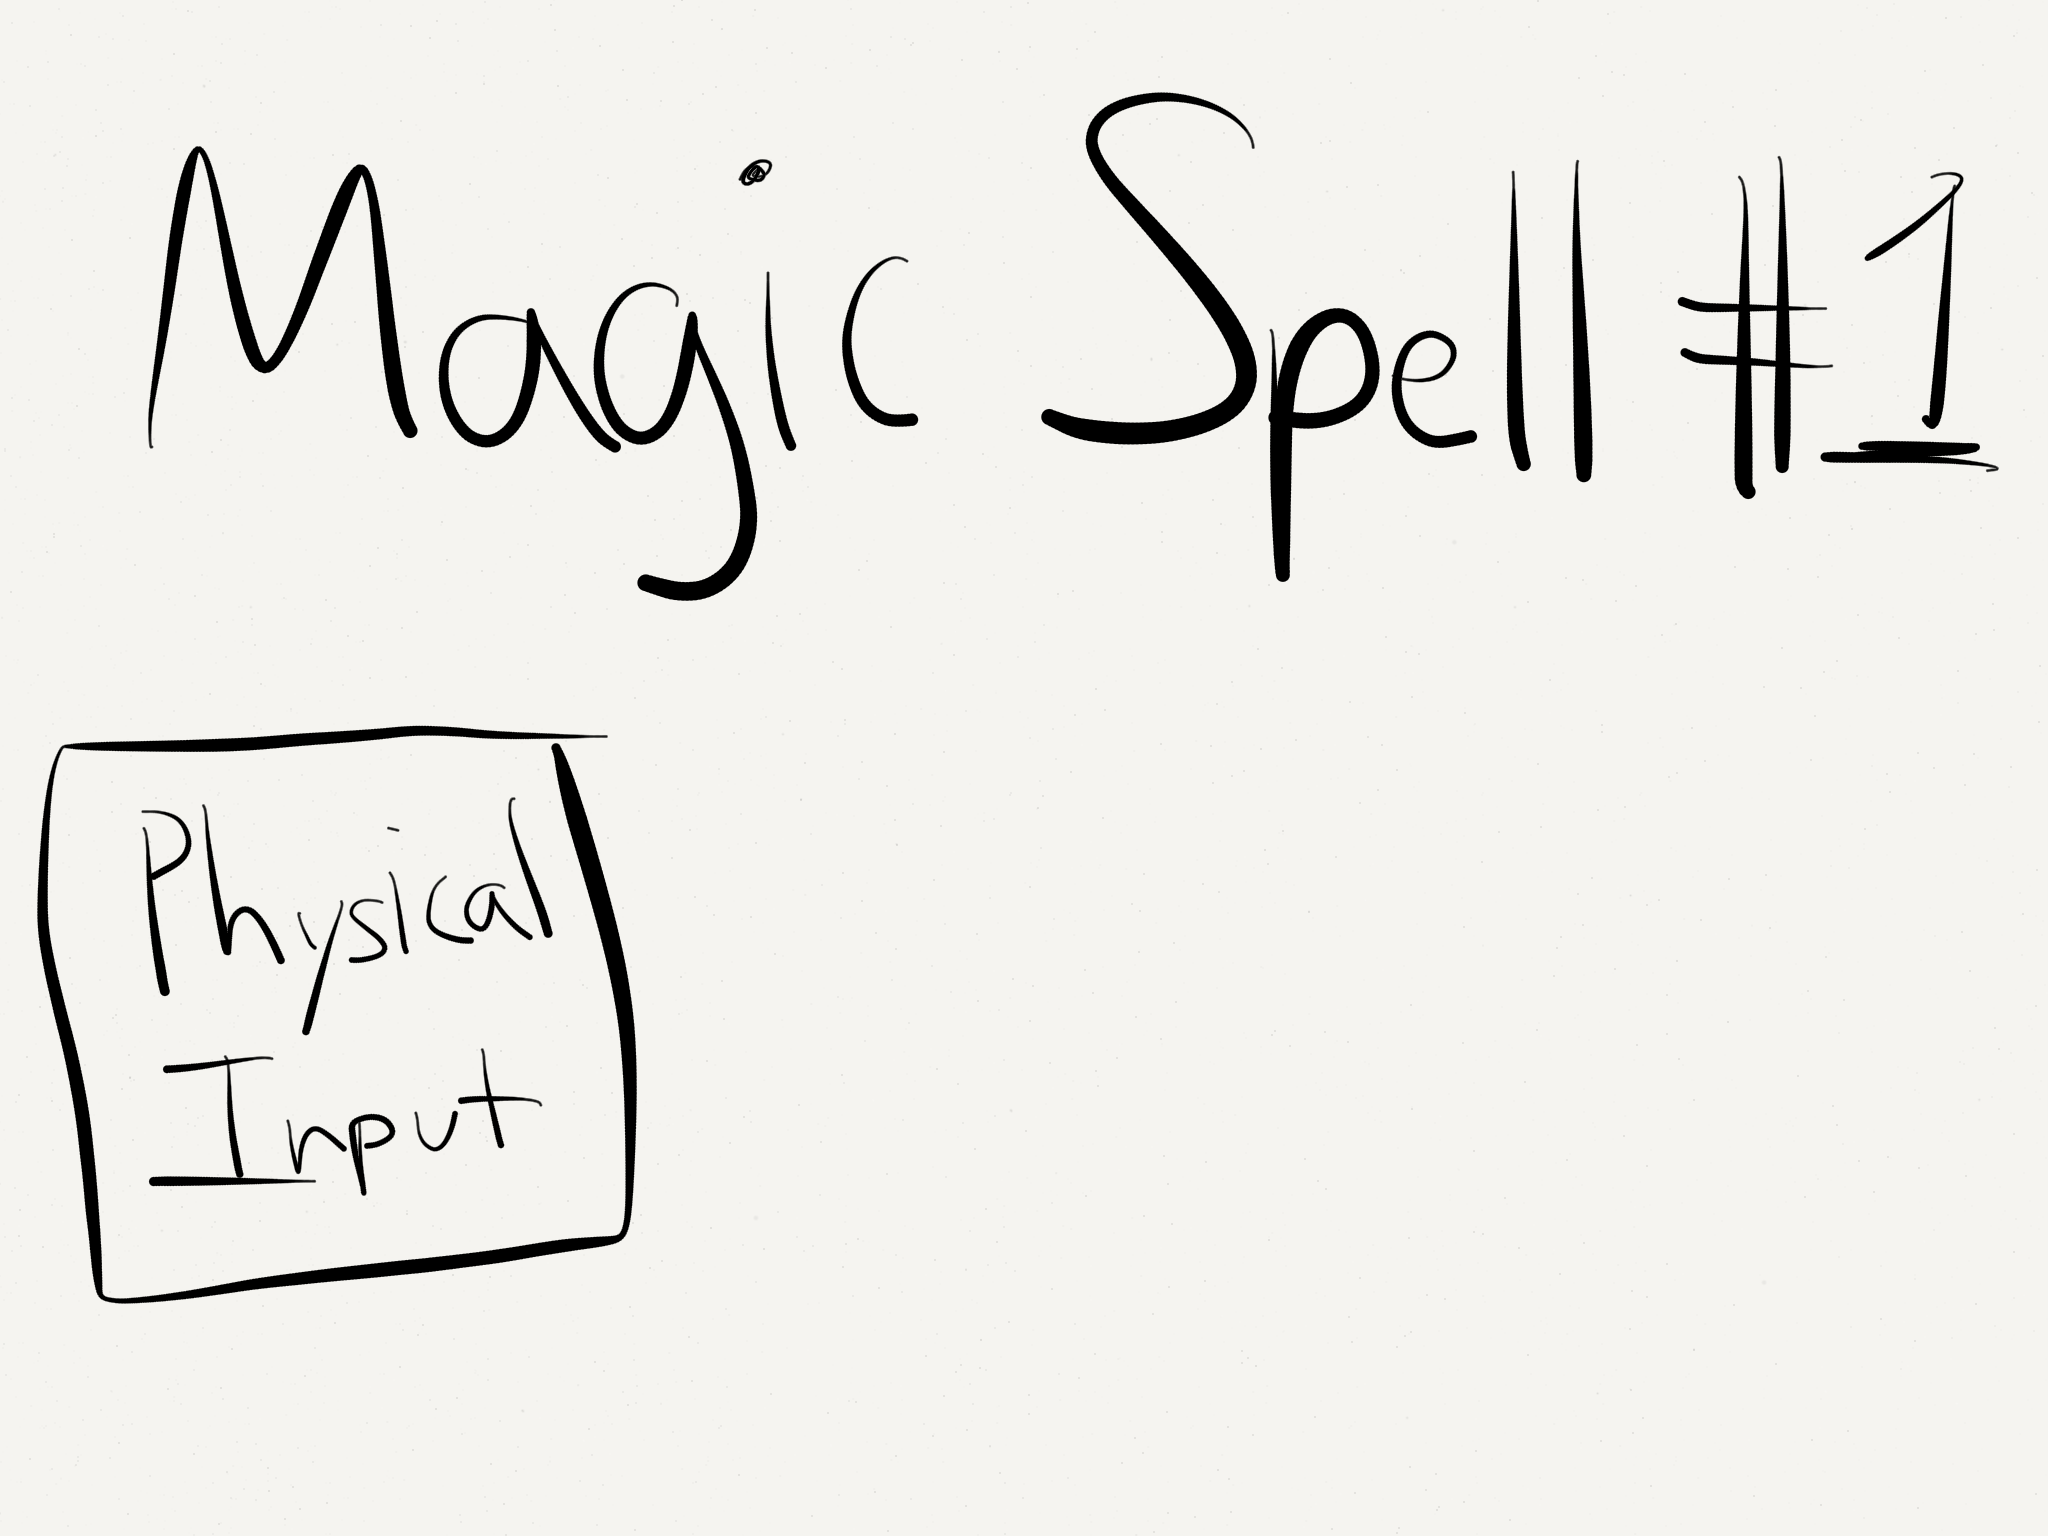 Magic Spell #1
Physical
Input